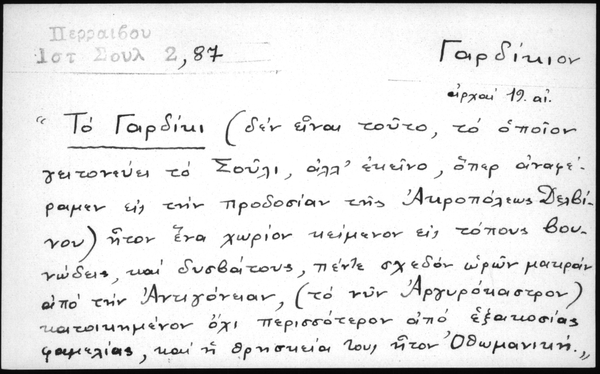 Περραιβου
Ιστ Σουλ 2, 87
Γαρδίκιον
ἀρχαὶ 19. αἰ.
"Τὸ Γαρδίκι (δὲν εἶναι τοῦτο, τὸ ὁποῖον
γειτονεύει τὸ Σοῦλι, ἀλλ' ἐκεῖνο, ὅπερ ἀναφέ-
ραμεν εἰς τὴν προδοσίαν τῆς Ἀκροπόλεως Δελβί-
νου) ἦτον ἕνα χωρίον κείμενον εἰς τόπους βου-
νώδεις, καὶ δυσβάτους, πέντε σχεδὸν ὡρῶν μακρὰν
ἀπὸ τὴν Ἀντιγόνειαν, (τὸ νῦν Ἀργυρόκαστρον)
κατοικημένον ὄχι περισσότερον ἀπὸ ἑξακοσίας
φαμελίας, καὶ ἡ θρησκεία τους ἦτον Ὀθωμανική.„